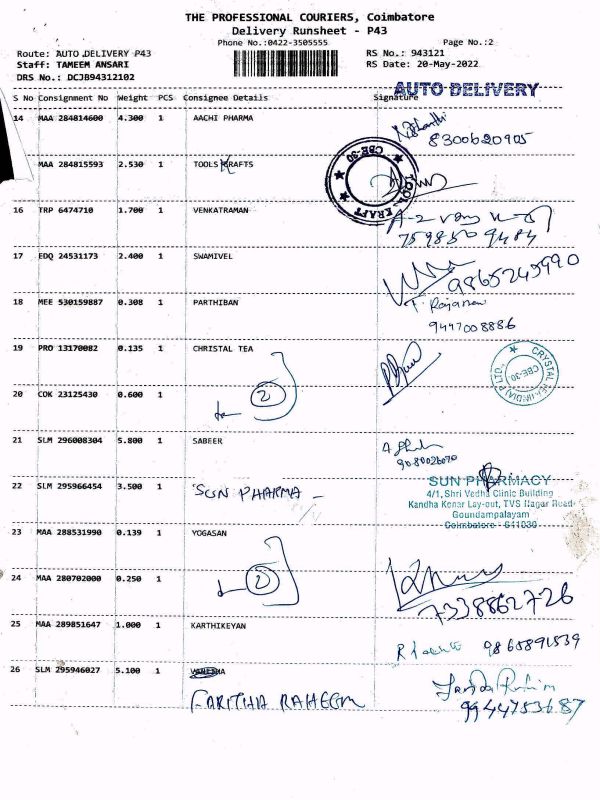 THE PROFESSIONAL COURIERS, Coimbatore
Delivery Runsheet - P43
Phone No.:0422-3505555 Page No.:2
Route: AUTO DELIVERY P43 RS No.: 943121
Staff: TAMEEM ANSARI RS Date: 20-May-2022
DRS No.: DCJB94312102
AUTO DELIVERY
S No Consignment No Weight PCS Consignee Details Signature
14 MAA 284814600 4.300 1 AACHI PHARMA
8300620905
MAA 284815593 2.530 1 TOOLS KRAFTS
TOOL KRAFT CBE-30
16 TRP 6474710 1.700 1 VENKATRAMAN
759850 9484
17 EDQ 24531173 2.400 1 SWAMIVEL
9865245990
18 MEE 530159887 0.308 1 PARTHIBAN
9447008886
19 PRO 13170082 0.135 1 CHRISTAL TEA
CRYSTAL (INDIA) P LTD., CBE-30
20 COK 23125430 0.600 1
2
21 SLM 296008304 5.800 1 SABEER
22 SLM 295966454 3.500 1 SUN PHARMA -
SUN PHARMACY
4/1, Shri Vedha Clinic Building
Kandha Konar Lay-out, TVS Nagar Road
Goundampalayam
Coimbatore - 641030
23 MAA 288531990 0.139 1 YOGASAN
24 MAA 280702000 0.250 1
2
7338862726
25 MAA 289851647 1.000 1 KARTHIKEYAN
9865891539
26 SLM 295946027 5.100 1
FARITHA RAHEEM
9944753687